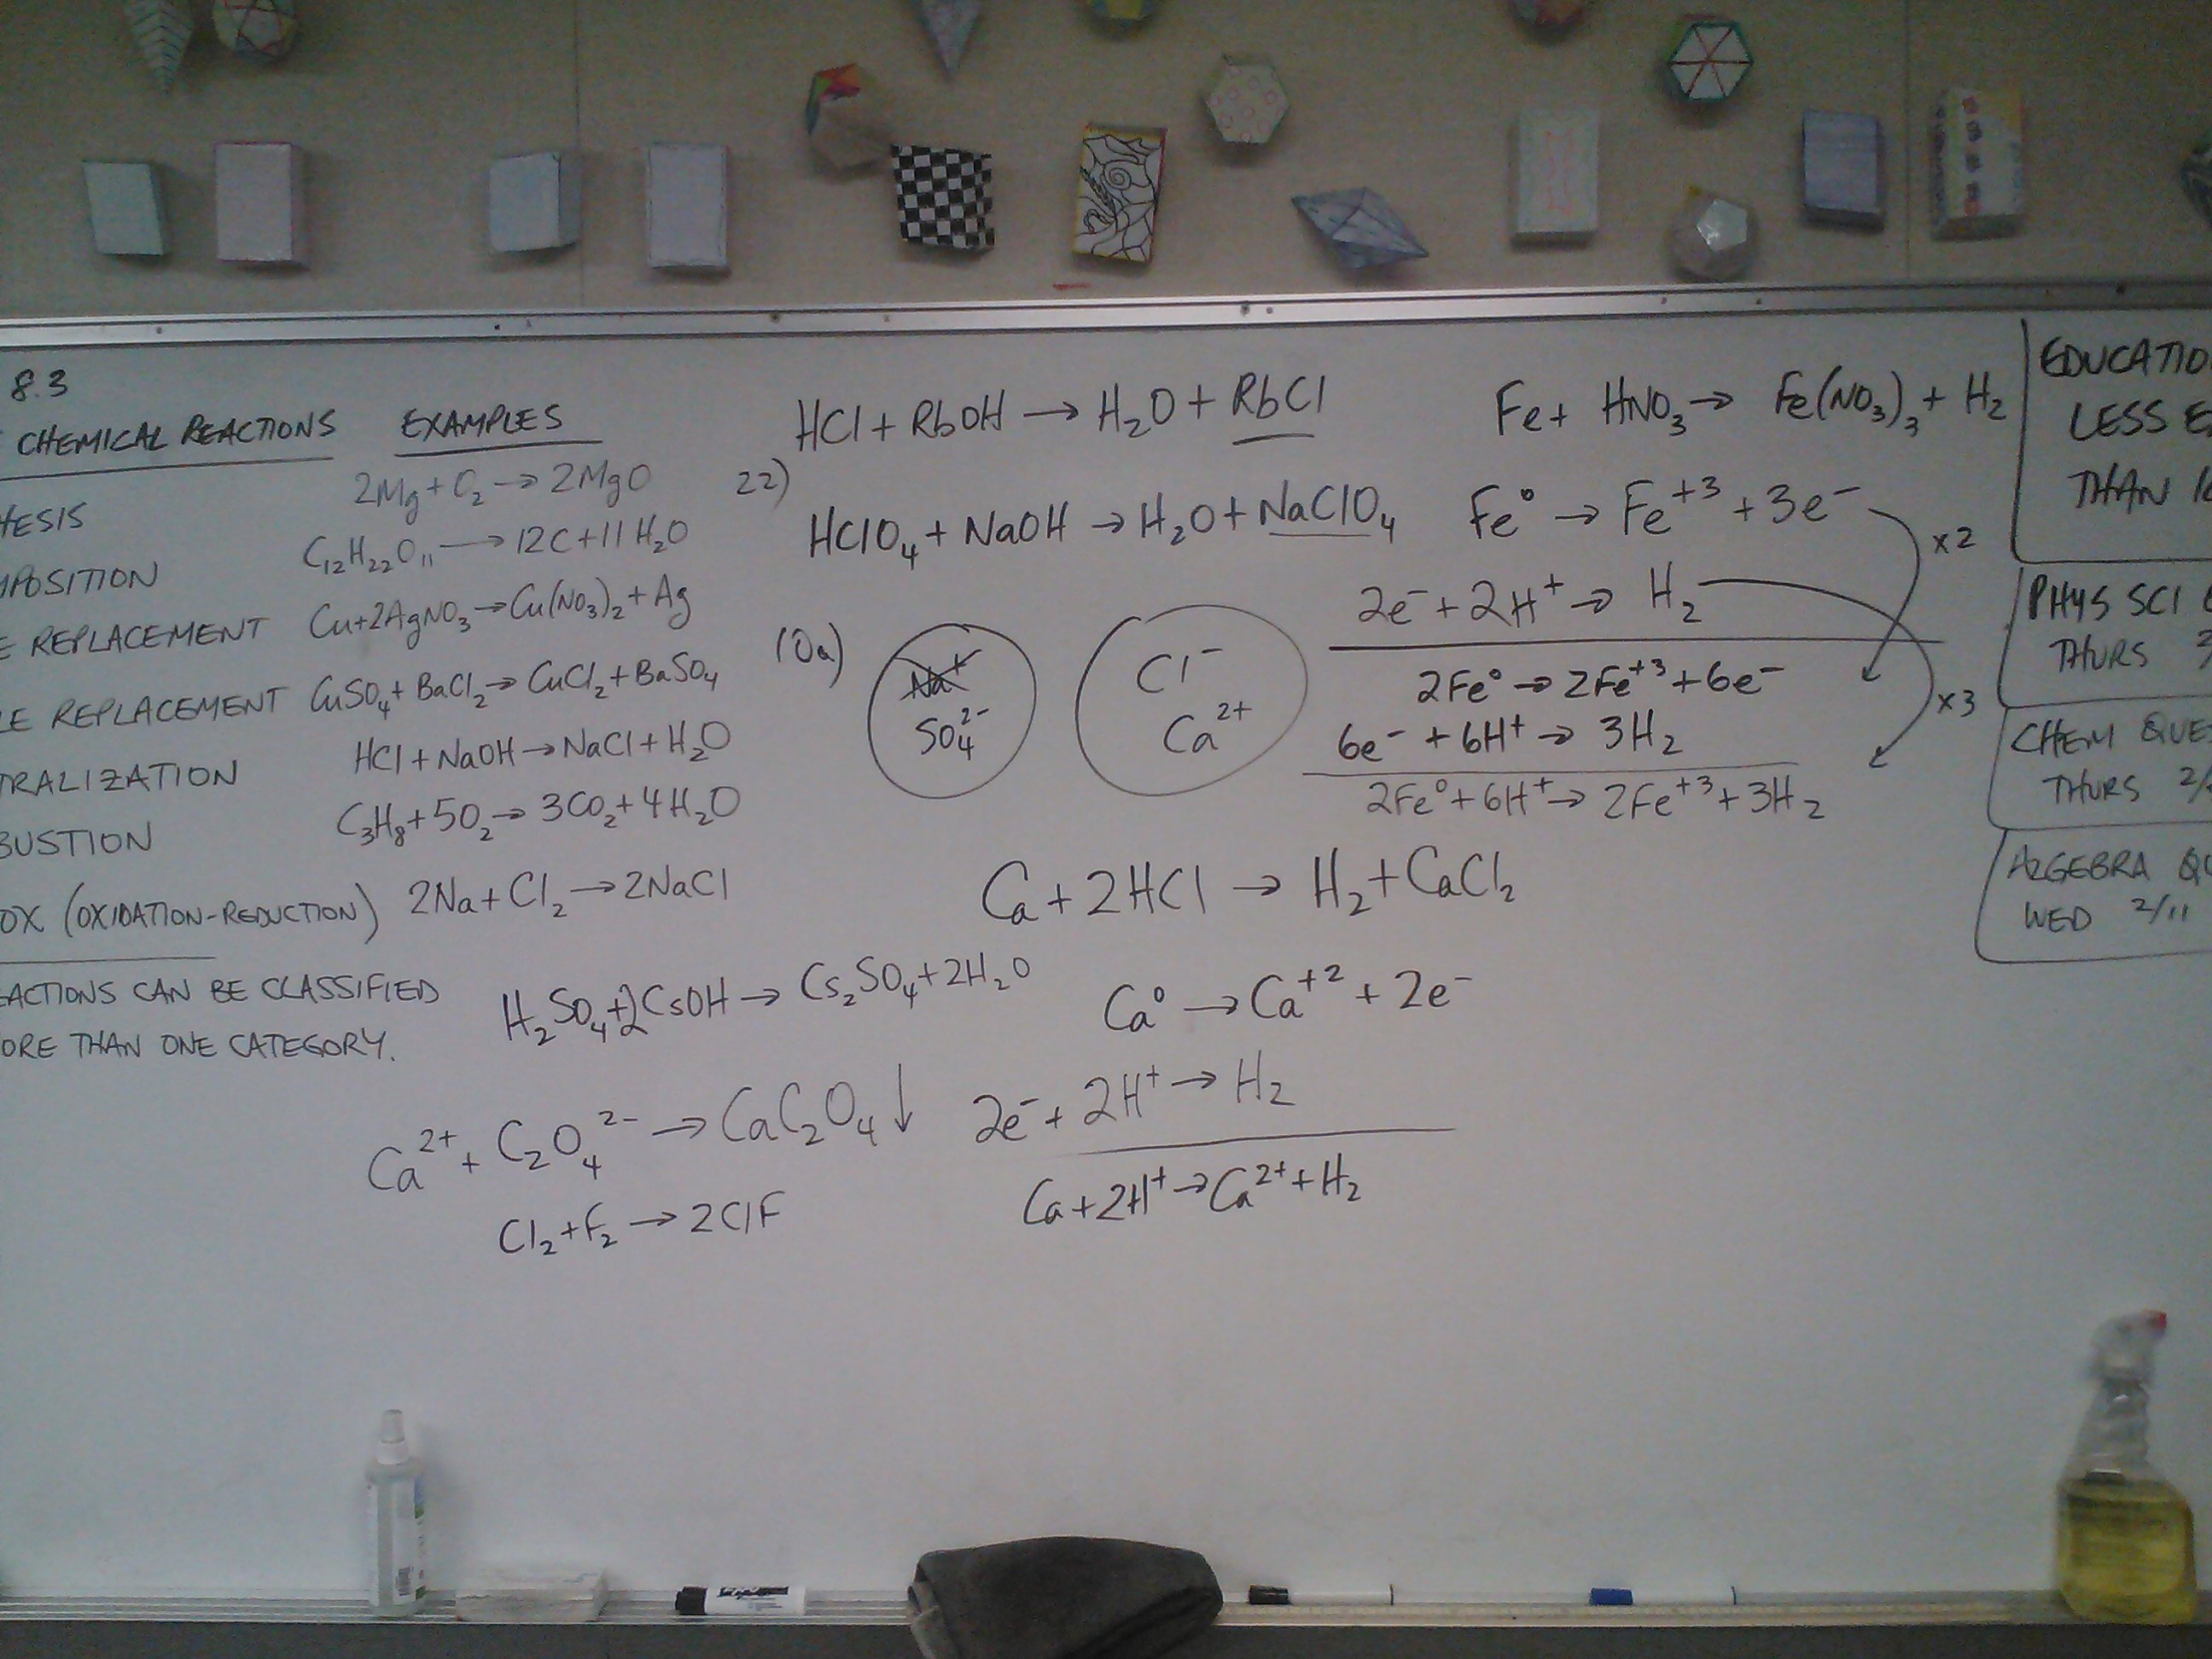 8.3
CHEMICAL REACTIONS EXAMPLES
2Mg + O₂ → 2MgO
HESIS
C₁₂H₂₂O₁₁ → 12C + 11H₂O
MPOSITION
E REPLACEMENT Cu + 2AgNO₃ → Cu(NO₃)₂ + Ag
LE REPLACEMENT CuSO₄ + BaCl₂ → CuCl₂ + BaSO₄
HCl + NaOH → NaCl + H₂O
TRALIZATION
C₃H₈ + 5O₂ → 3CO₂ + 4H₂O
BUSTION
OX (OXIDATION-REDUCTION) 2Na + Cl₂ → 2NaCl
EACTIONS CAN BE CLASSIFIED
ORE THAN ONE CATEGORY.
HCl + RbOH → H₂O + RbCl
22)
HClO₄ + NaOH → H₂O + NaClO₄
10a)
Na⁺
SO₄²⁻
Cl⁻
Ca²⁺
Fe + HNO₃ → Fe(NO₃)₃ + H₂
Fe⁰ → Fe⁺³ + 3e⁻
x2
2e⁻ + 2H⁺ → H₂
2Fe⁰ → 2Fe⁺³ + 6e⁻
x3
6e⁻ + 6H⁺ → 3H₂
2Fe⁰ + 6H⁺ → 2Fe⁺³ + 3H₂
Ca + 2HCl → H₂ + CaCl₂
H₂SO₄ + 2CsOH → Cs₂SO₄ + 2H₂O
Ca⁰ → Ca⁺² + 2e⁻
Ca²⁺ + C₂O₄²⁻ → CaC₂O₄↓
2e⁻ + 2H⁺ → H₂
Cl₂ + F₂ → 2ClF
Ca + 2H⁺ → Ca²⁺ + H₂
EDUCATIO
LESS E
THAN
PHYS SCI
THURS
CHEM QUES
THURS 2/
ALGEBRA QU
WED 2/11